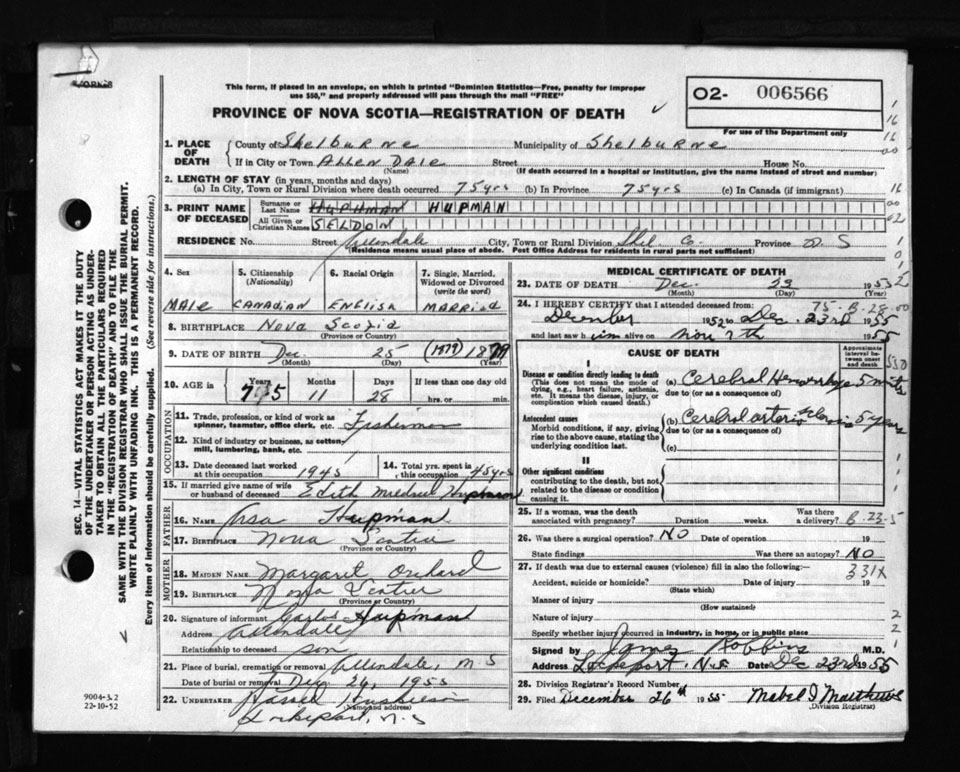 This form, if placed in an envelope, on which is printed "Dominion Statistics—Free, penalty for improper
use $50," and properly addressed will pass through the mail "FREE"
PROVINCE OF NOVA SCOTIA—REGISTRATION OF DEATH
O2- 006566
For use of the Department only
SEC. 14—VITAL STATISTICS ACT MAKES IT THE DUTY
OF THE UNDERTAKER OR PERSON ACTING AS UNDER-
TAKER TO OBTAIN ALL THE PARTICULARS REQUIRED
IN THE "REGISTRATION OF DEATH" AND TO FILE THE
SAME WITH THE DIVISION REGISTRAR WHO SHALL ISSUE THE BURIAL PERMIT.
WRITE PLAINLY WITH UNFADING INK. THIS IS A PERMANENT RECORD.
Every item of information should be carefully supplied. (See reverse side for instructions.)
1. PLACE OF DEATH
County of Shelburne Municipality of Shelburne
If in City or Town Allen Dale Street House No.
(Name) (If death occurred in a hospital or institution, give the name instead of street and number)
2. LENGTH OF STAY (in years, months and days)
(a) In City, Town or Rural Division where death occurred 75 yrs (b) In Province 75 yrs (c) In Canada (if immigrant)
3. PRINT NAME OF DECEASED
Surname or Last Name HUPHMAN HUPMAN
All Given or Christian Names SELDON
RESIDENCE No. Street Allendale City, Town or Rural Division Shel Co. Province N S
(Residence means usual place of abode. Post Office Address for residents in rural parts not sufficient)
4. Sex MALE
5. Citizenship (Nationality) CANADIAN
6. Racial Origin ENGLISH
7. Single, Married, Widowed or Divorced (write the word) MARRIED
8. BIRTHPLACE Nova Scotia
(Province or Country)
9. DATE OF BIRTH Dec. 25 (1879) 1879
(Month) (Day) (Year)
10. AGE in Years 75 Months 11 Days 28 If less than one day
hrs. or min.
OCCUPATION
11. Trade, profession, or kind of work as
spinner, teamster, office clerk, etc. Fisherman
12. Kind of industry or business, as cotton-
mill, lumbering, bank, etc.
13. Date deceased last worked
at this occupation 1945
14. Total yrs. spent in
this occupation 45 yrs
15. If married give name of wife
or husband of deceased Edith Mildred Hupman
FATHER
16. NAME Asa Hupman
17. BIRTHPLACE Nova Scotia
(Province or Country)
MOTHER
18. MAIDEN NAME Margaret Orchard
19. BIRTHPLACE Nova Scotia
(Province or Country)
20. Signature of informant Carlos Hupman
Address Allendale
Relationship to deceased son
21. Place of burial, cremation or removal Allendale, N S
Date of burial or removal Dec 26, 1955
22. UNDERTAKER
(Name and address)
Lockeport, N. S
9004-3.2
22-10-52
MEDICAL CERTIFICATE OF DEATH
23. DATE OF DEATH Dec. 23 1955
(Month) (Day) (Year)
24. I HEREBY CERTIFY that I attended deceased from:
December 1952 to Dec. 23rd 1955
and last saw him alive on Nov 7th 1955
CAUSE OF DEATH
Approximate interval between onset and death
I
Disease or condition directly leading to death
(This does not mean the mode of
dying, e.g., heart failure, asthenia,
etc. It means the disease, injury, or
complication which caused death.)
(a) Cerebral Hemorrhage 5 mins
due to (or as a consequence of)
Antecedent causes
Morbid conditions, if any, giving
rise to the above cause, stating the
underlying condition last.
(b) Cerebral arterio sclerosis 5 years
due to (or as a consequence of)
(c)
II
Other significant conditions
contributing to the death, but not
related to the disease or condition
causing it.
25. If a woman, was the death
associated with pregnancy? Duration weeks. Was there
a delivery? B-23-5
26. Was there a surgical operation? NO Date of operation 19
State findings Was there an autopsy? NO
27. If death was due to external causes (violence) fill in also the following:—
331X
Accident, suicide or homicide? Date of injury 19
(State which)
Manner of injury
(How sustained)
Nature of injury
Specify whether injury occurred in industry, in home, or in public place
Signed by James Robbins M.D.
Address Lockeport N.S Date Dec 23rd 1955
28. Division Registrar's Record Number
29. Filed December 26th 1955 Mabel I Matthews
(Division Registrar)